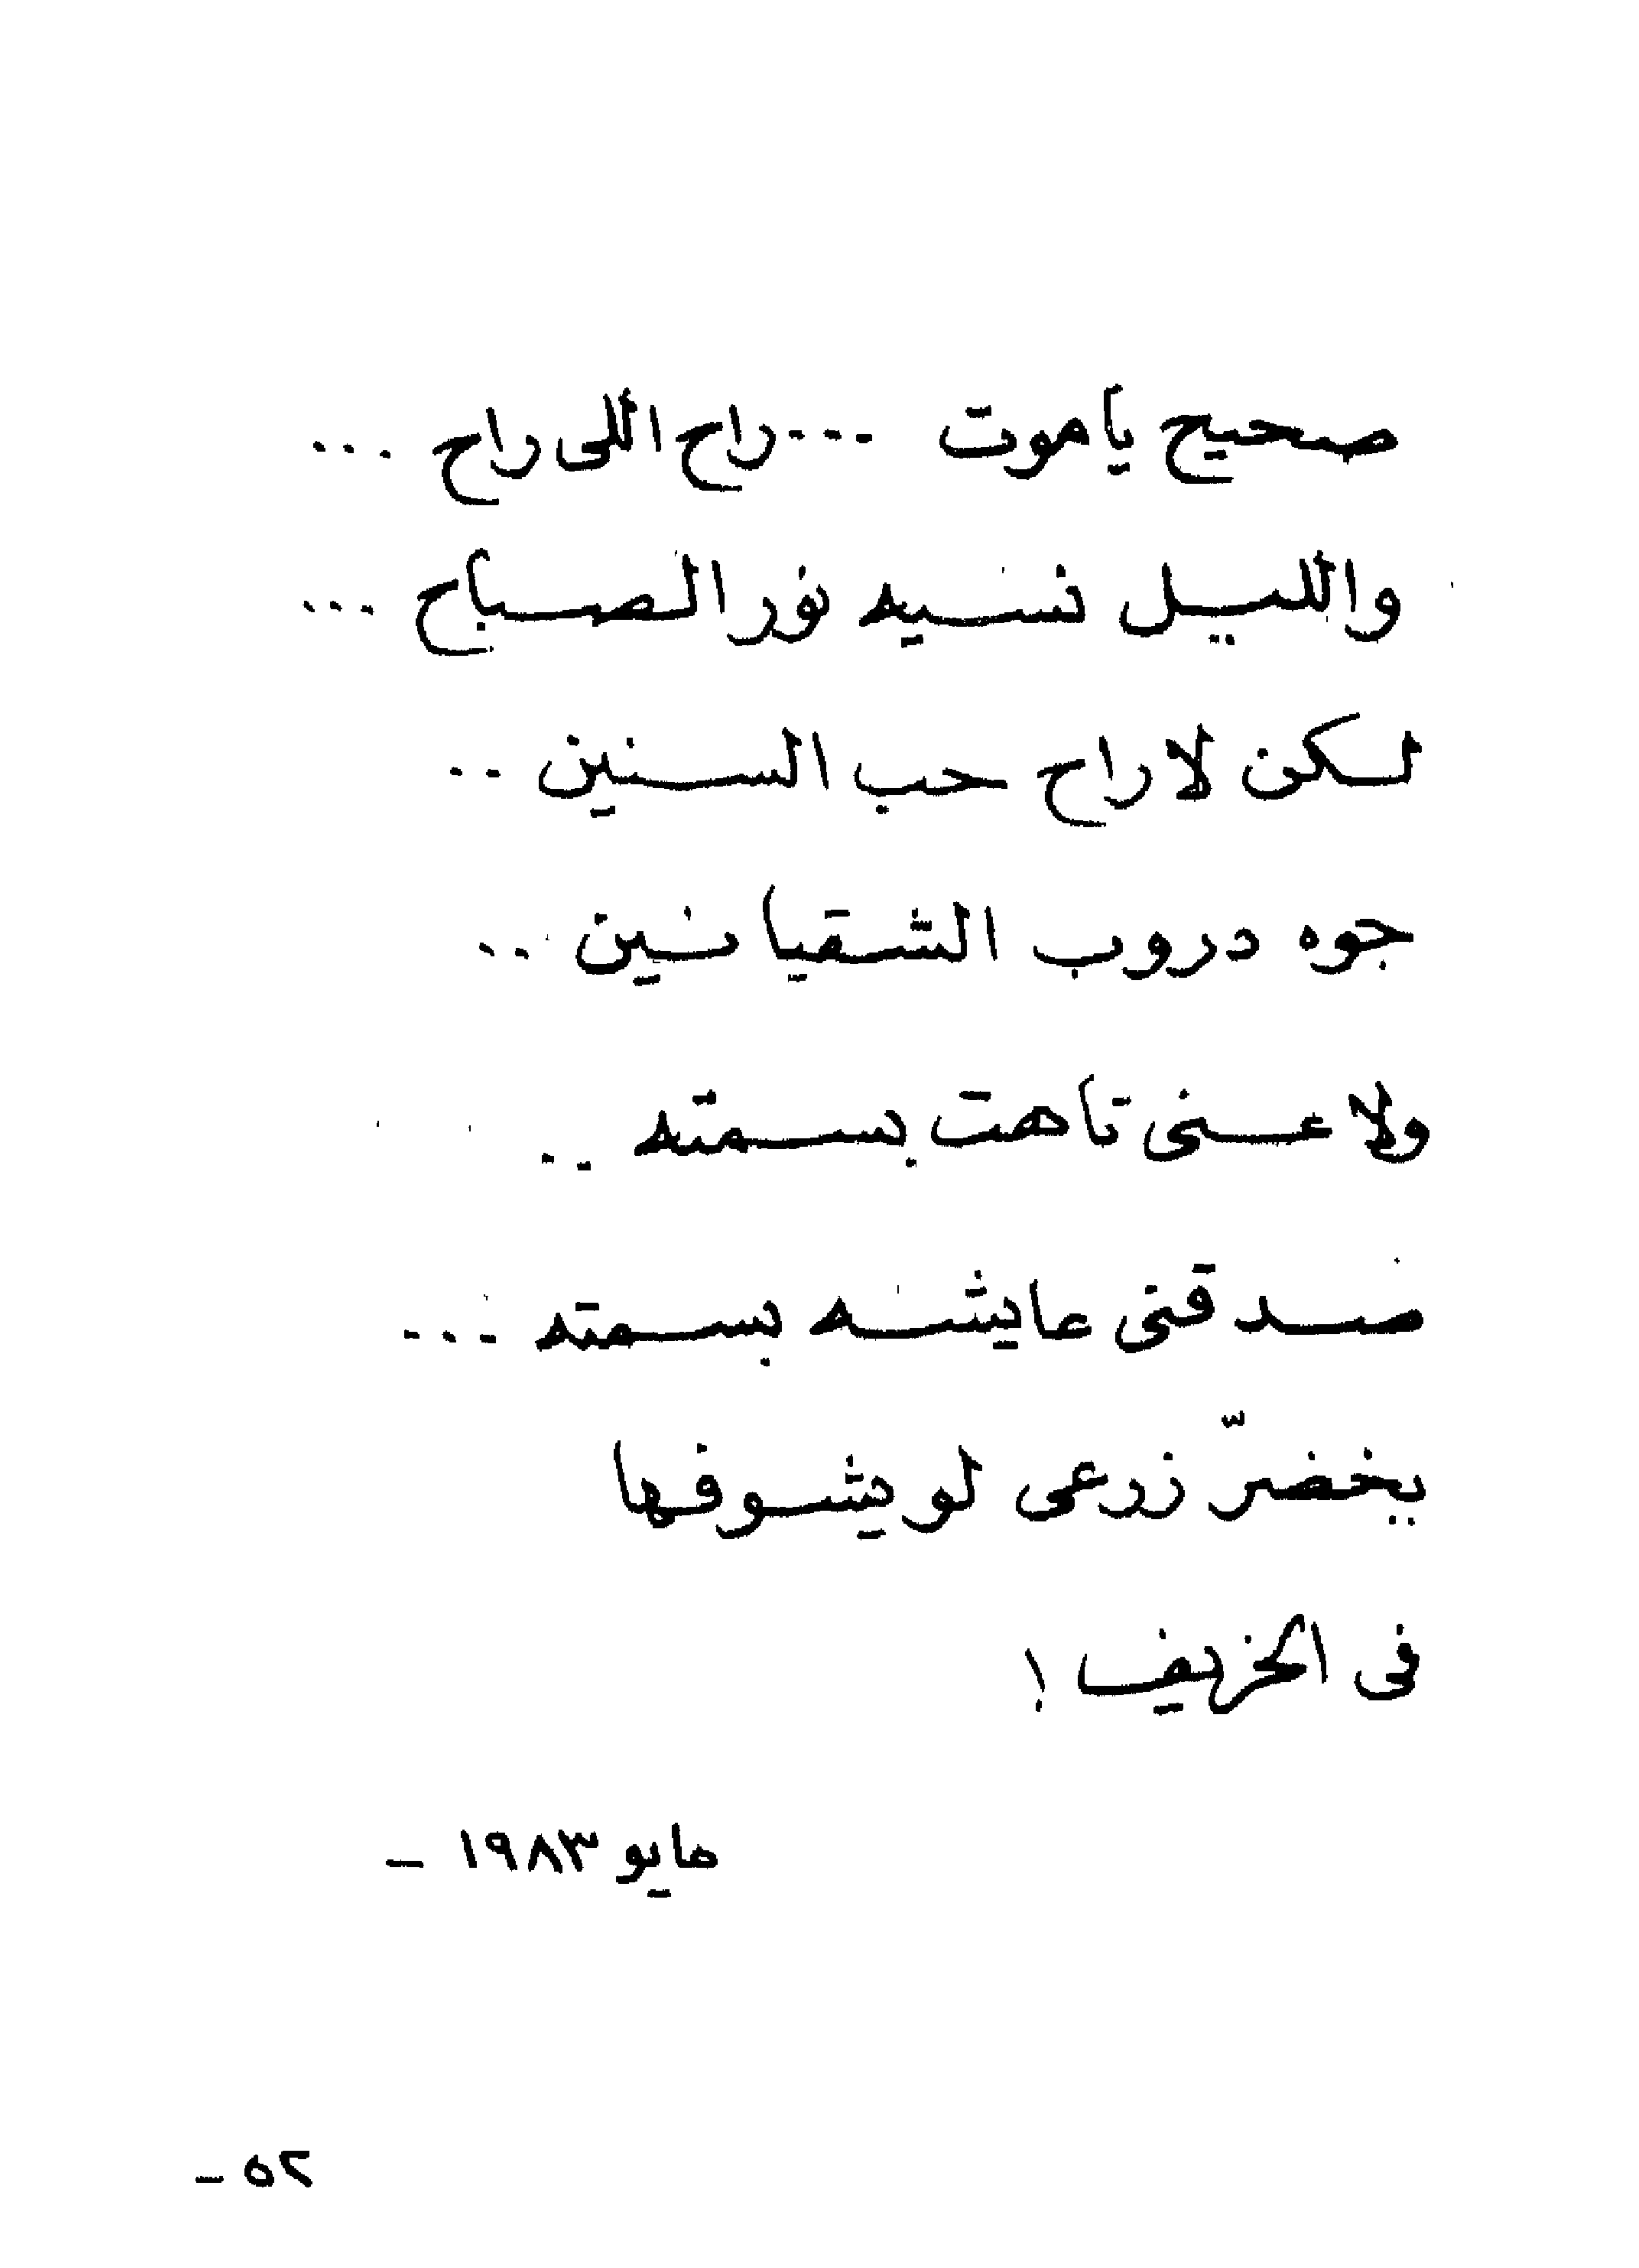 صحيح يا موت ... راح اللى راح ...
والليل نسيه نور الصباح ...
لكن لا راح حب السنين ..
جوه دروب الشقيانين ..
ولا عنى تاهت بسمته ..
صدقنى عايشه بسمته ...
يخضرّ زرعى لو يشوفها
فى الخريف !
مايو ١٩٨٣ -
٥٢ -